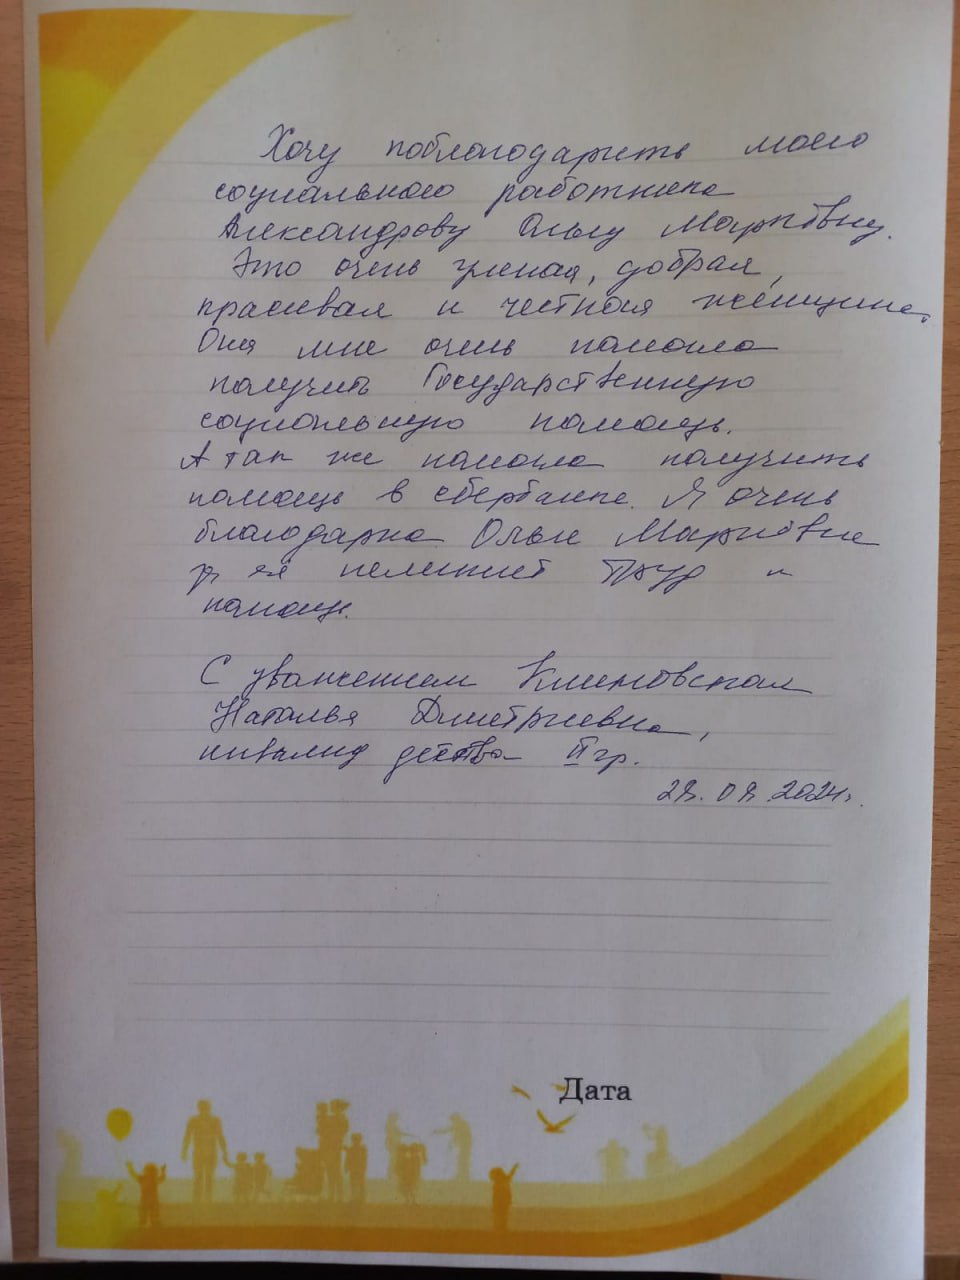 Хочу поблагодарить моего
социального работника
Александрову Ольгу Марковну.
Это очень умная, добрая,
красивая и честная женщина.
Она мне очень помогла
получить Государственную
социальную помощь.
А так же помогла получить
помощь в сбербанке. Я очень
благодарна Ольге Марковне
за её нелегкий труд и
помощь.
С уважением Климовская
Наталья Дмитриевна,
инвалид детства III гр.
2024г.
Дата